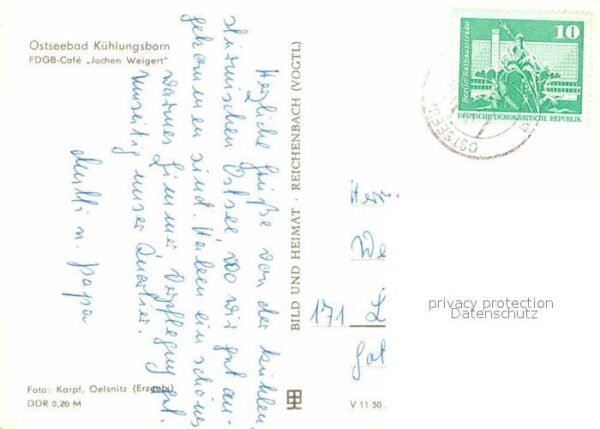 Ostseebad Kühlungsborn
FDGB-Café „Jochen Weigert"
Herzliche Grüße von der kühlen,
stürmischen Ostsee, wo wir gut an-
gekommen sind. Haben ein schönes
warmes Zimmer, Verpflegung gut.
unser Quartier.
Mutti u. Papa
Foto: Karpf, Oelsnitz (Erzgeb)
DDR 0,20 M
BILD UND HEIMAT · REICHENBACH (VOGTL)
V 11 50
10
Berlin, Rathausstraße
DEUTSCHE DEMOKRATISCHE REPUBLIK
OSTSEEB
We
171 L
privacy protection
Datenschutz